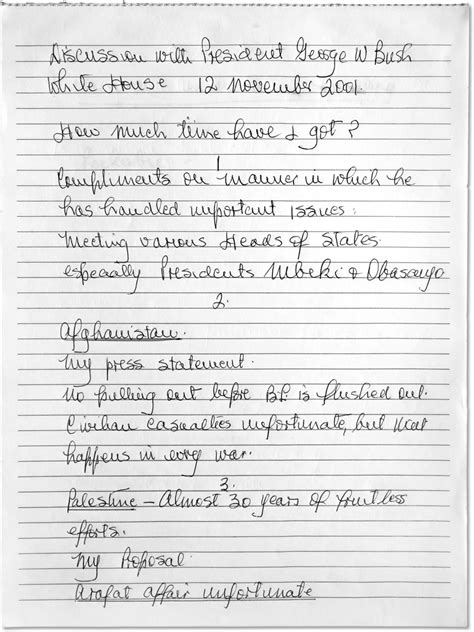 Discussion with President George W Bush
White House 12 November 2001.
How much time have I got?
1
Compliments on manner in which he
has handled important issues:
Meeting various Heads of States
especially Presidents Mbeki & Obasanjo
2.
Afghanistan.
My press statement.
No pulling out before B.L. is flushed out.
Civilian casualties unfortunate, but that
happens in every war.
3.
Palestine – Almost 30 years of fruitless
efforts.
My Proposal
Arafat affair unfortunate